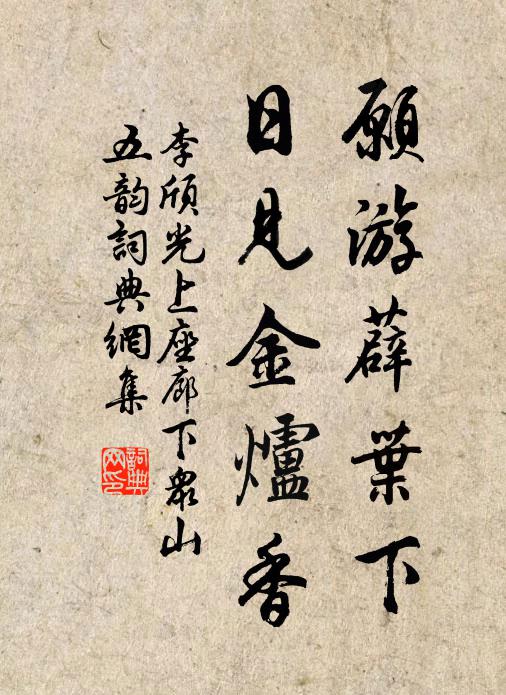 願游薜葉下
日見金爐香
李頎光上座廊下眾山
五韵詞典網集
詞典
网印